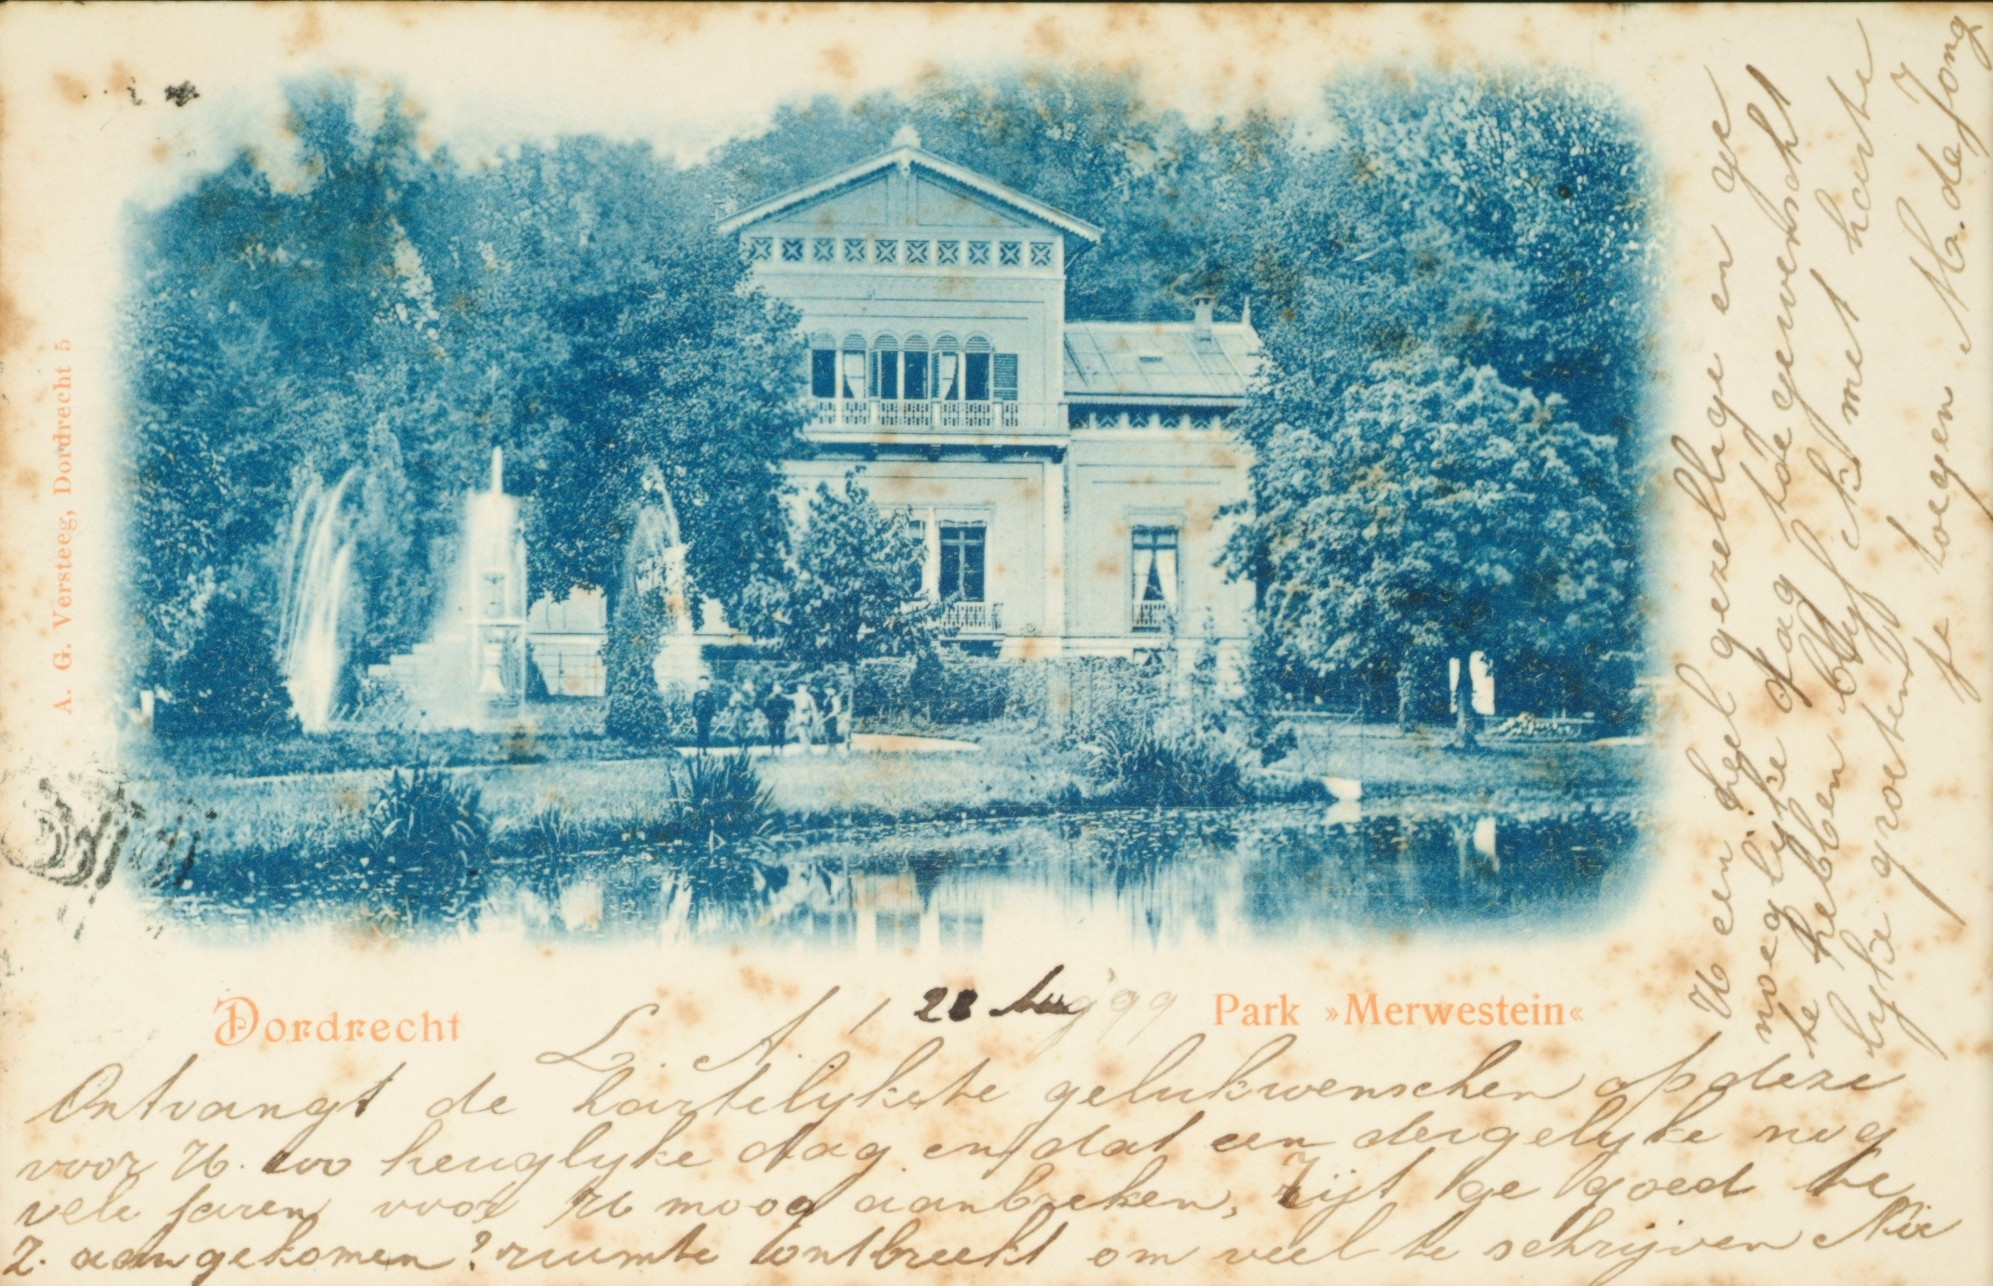 A. G. Versteeg, Dordrecht 5
Dordrecht
Park »Merwestein«
L. A. / 28 Aug '99
Ontvangt de hartelijkste gelukwenschen op deze
voor U. zoo heuglyke dag en dat een dergelyke nog
vele jaren voor U moog aanbreken, Zijt ge goed te
Z. aangekomen? ruimte ontbreekt om veel te schrijven
U een heel gezellige en ge
noeglyke dag toegewenscht
te hebben blyf ik met harte
lyke groeten
M. de Jong